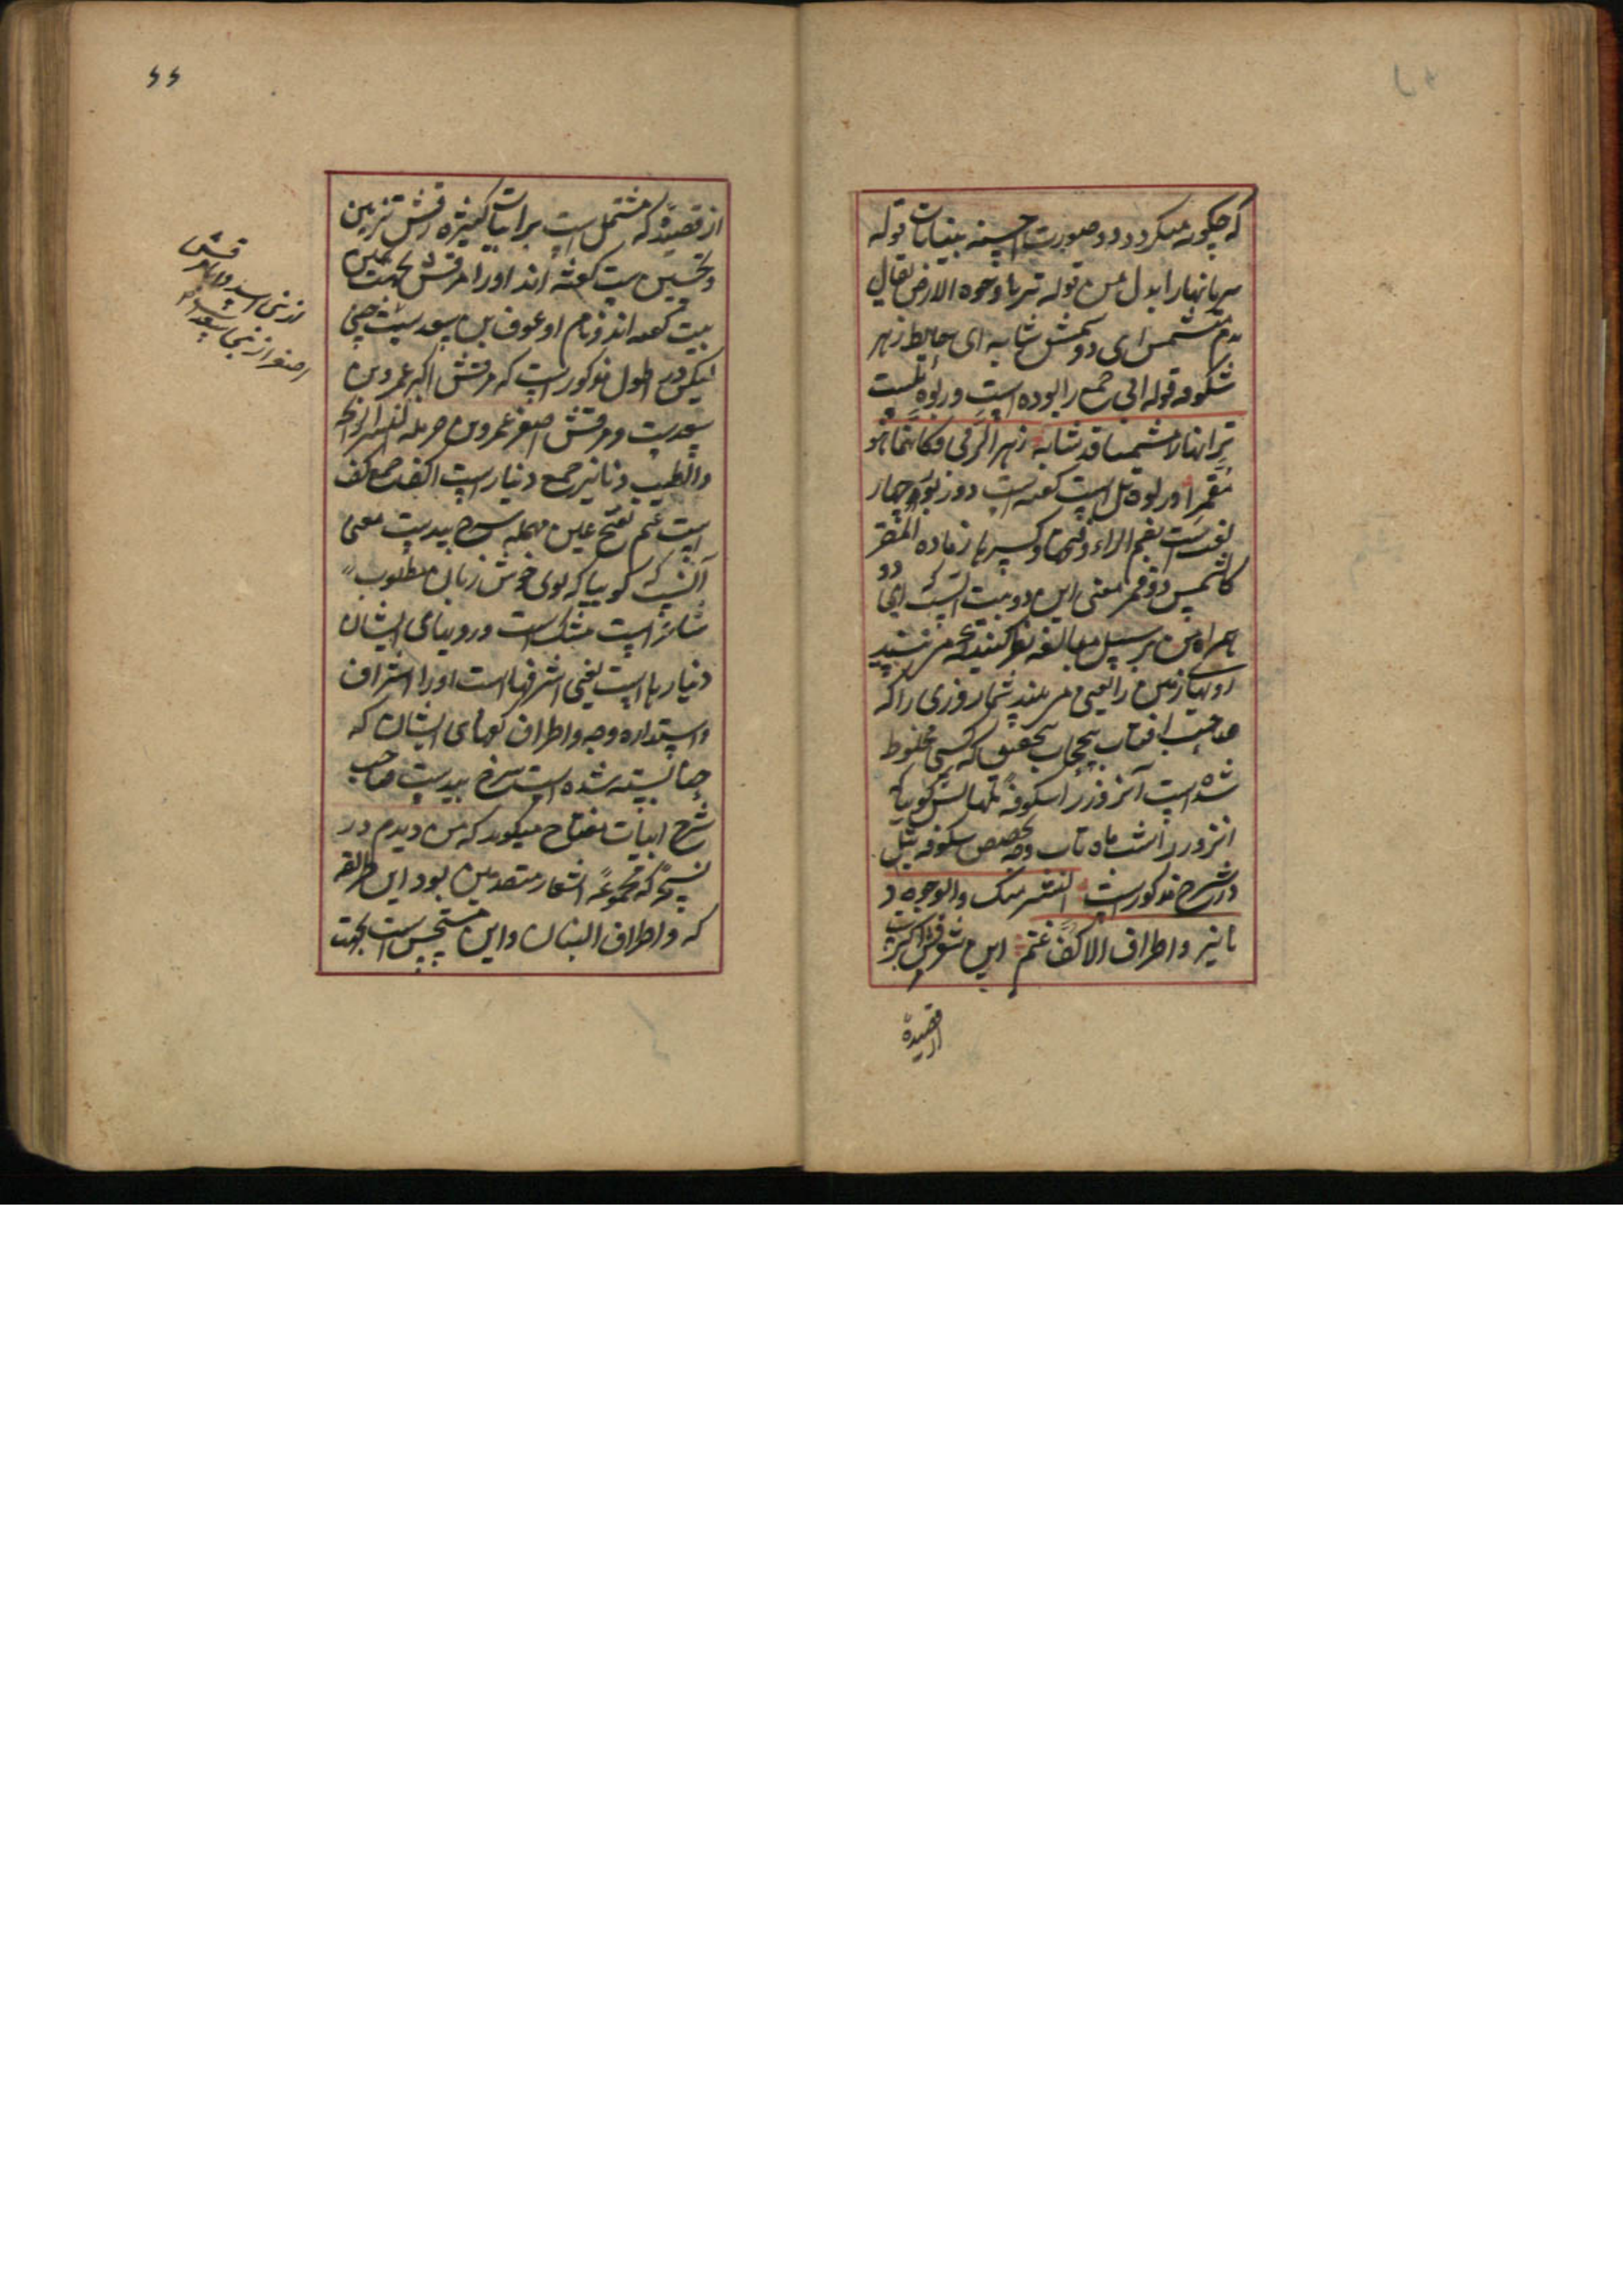 که چگونه میکردد و صورت حسنه بنباتات قوله
تریا نهارا بدل من قوله تریا وجوه الارض یقال
یوم مشمس ای ذو شمس شابه ای خالط زهر
شکوفه قوله الربی جمع رابوه است و ربوه تلست
تریا نهارا مشمسا قد شابه زهر الربی فکانما هو
مقمر و ربوه تل است کفته است در ربوه چهار
لغت است بضم الراء و فتحها و کسرها زماده المقمر
کالشمس ذو قمر معنی این دو بیت انست که ای دو
همراه من بر سبیل مبالغه نظر کنید که می بینید
رویهای زمین را یعنی می بیند شما روزی را که
صاحب افتاب بیحجاب بتحقیق که کسی مخلوط
شده است آنروز را شکوفه تلهایش کویا که
انروز را شب ماه تاب وجه تخصیص شکوفه تل
در شرح مذکور است النشر مسک والوجوه د
نانیر و اطراف الاکف عنم این شعر مرقش اکبر است
از قصیده
۶۶
از قصیده که مشتمل است بر ابیات کثیره رقش تزیین
و تحسین بیت کفته اند او را مرقش بجهت همین
بیت کفته اند و نام او عوف بن سعد است
لیکن در اطول مذکور است که مرقش اکبر عمرو بن
سعد است و مرقش اصغر عمرو بن حرمله النشر الرایحه
والطیب دنانیر جمع دینار است اکف جمع کف
است عنم بفتح عین مهمله سرخ بید است معنی
آنست که کویا که بوی خوش زنان مطلوب
شاعر است مشک است و رویهای ایشان
دینارها است یعنی اشرفیها است او را اشراق
و استداره وجه و اطراف کفهای ایشان که
حنا بسته شده است سرخ بید است صاحب
شرح ابیات مفتاح میکوید که من دیدم در
نسخه که مجموعه اشعار متقدمین بود این طریقه
که و اطراف البنان و این مستحسن است بجهت
مرقش
از بنی اسد و
اصغر از بنی سعد است